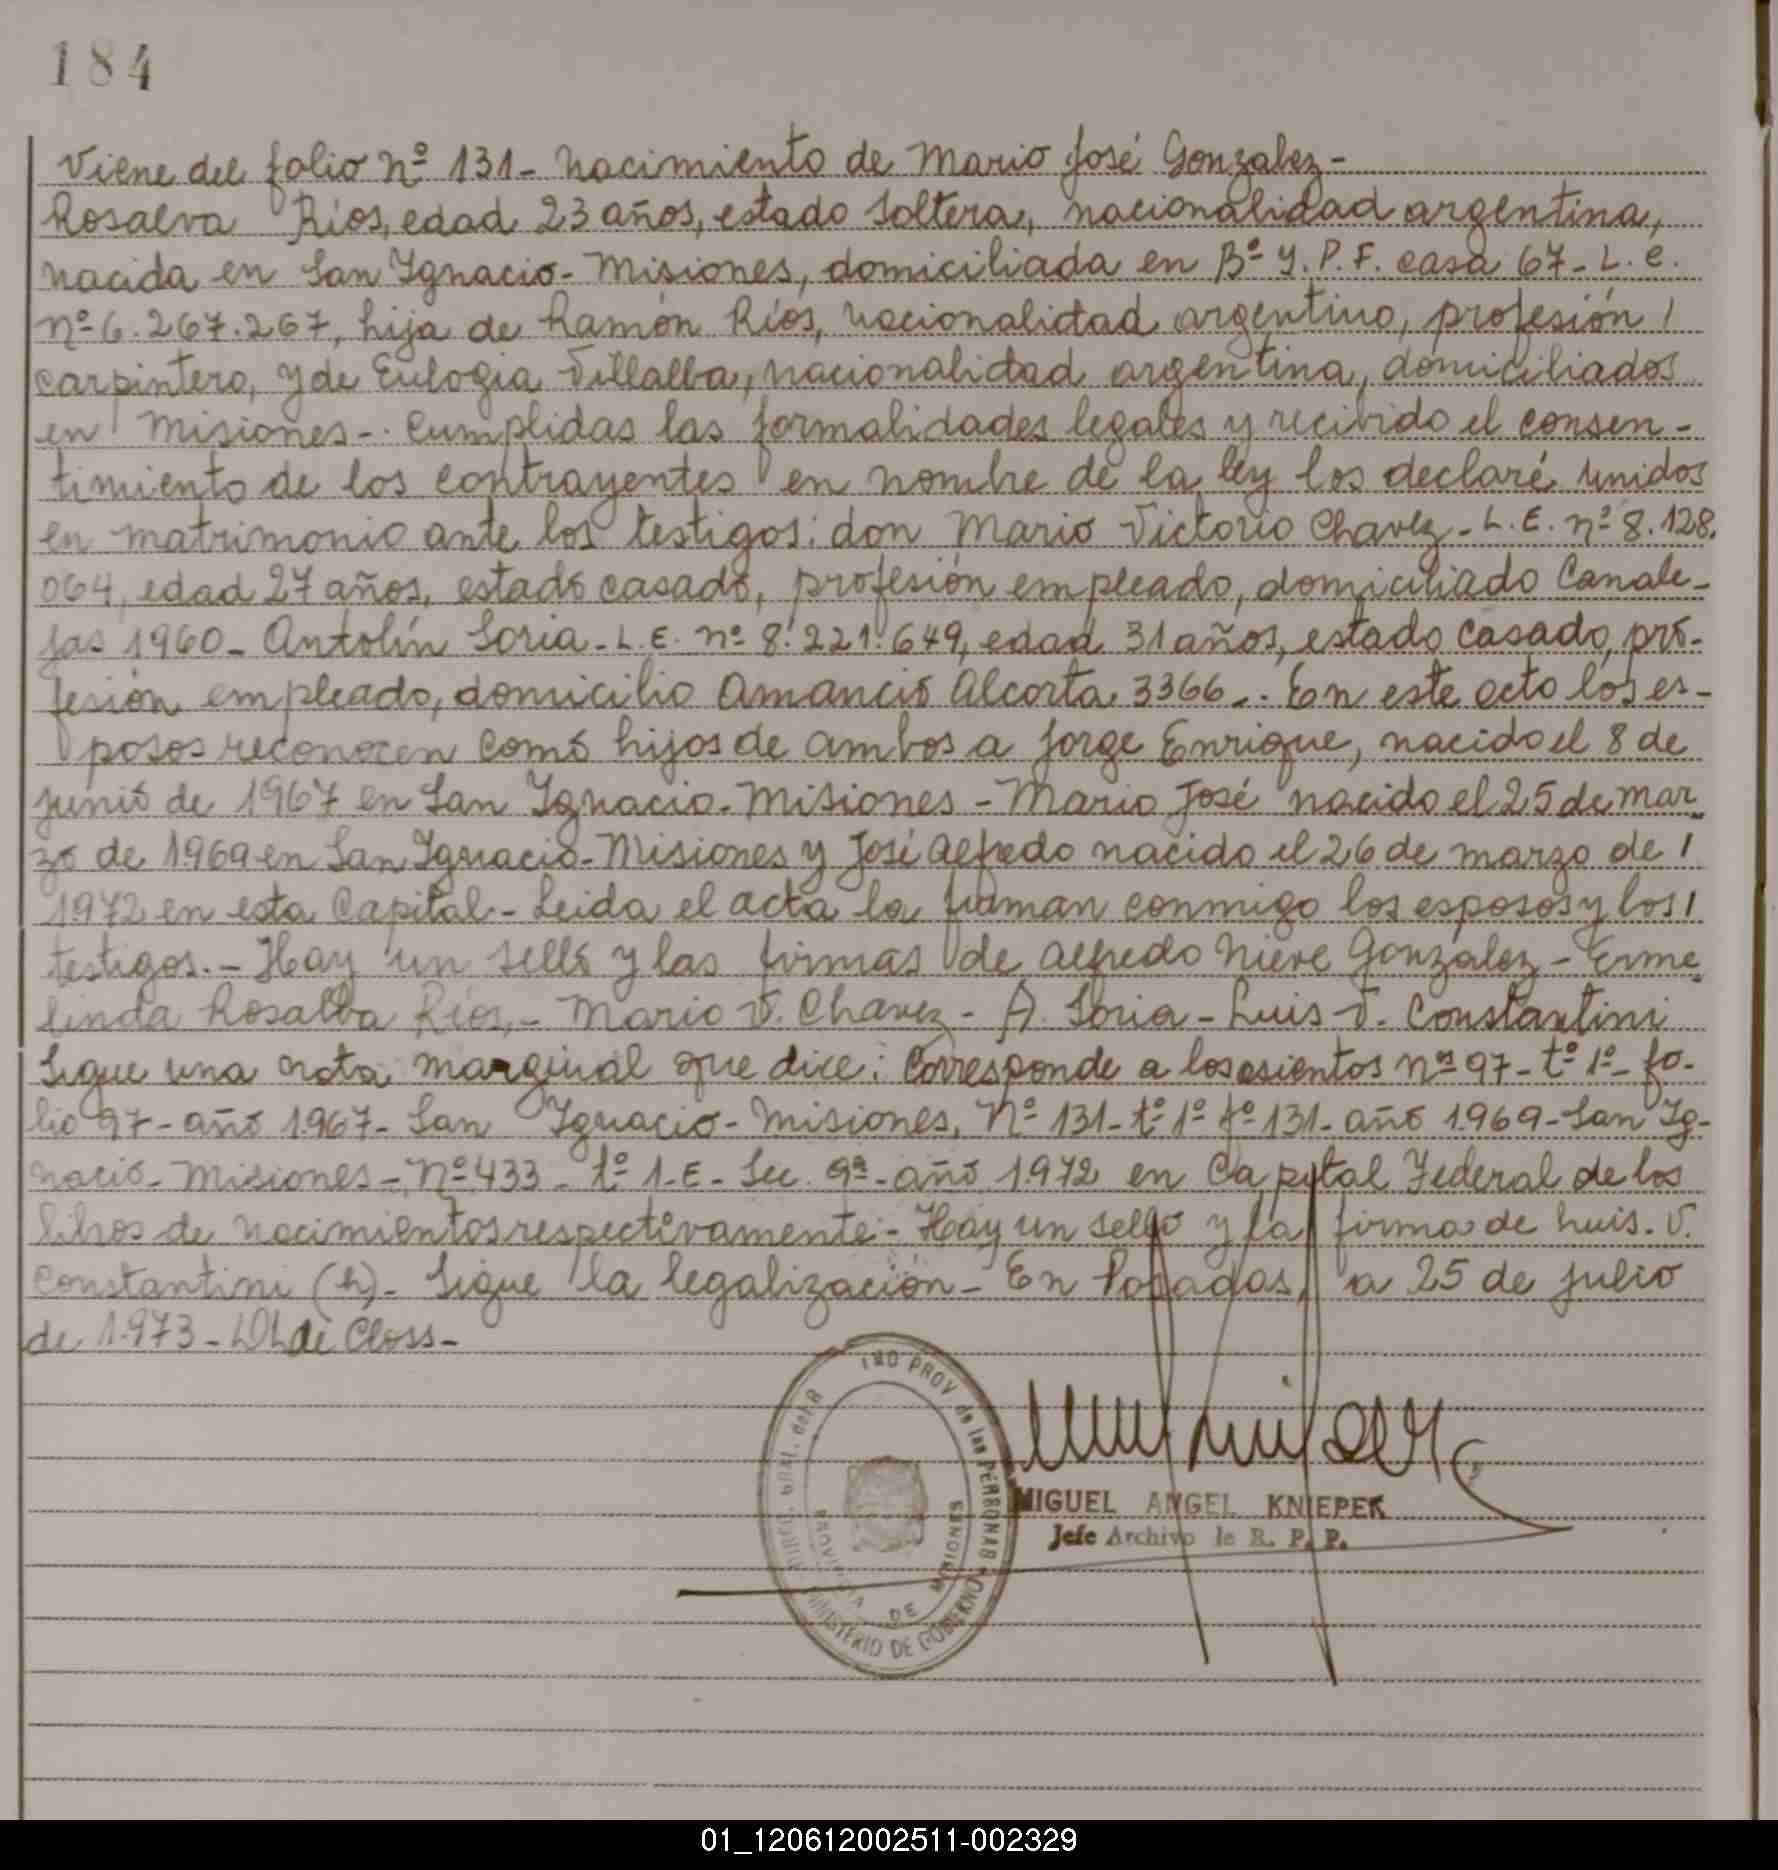 184
Viene del folio nº 131- Nacimiento de Mario José Gonzalez-
Rosalva Ríos, edad 23 años, estado soltera, nacionalidad argentina,
nacida en San Ignacio- Misiones, domiciliada en Bº Y.P.F. casa 67- L.C.
nº 6.267.267, hija de Ramón Ríos, nacionalidad argentino, profesión /
carpintero, y de Eulogia Villalba, nacionalidad argentina, domiciliados
en Misiones-. Cumplidas las formalidades legales y recibido el consen-
timiento de los contrayentes en nombre de la ley los declaré unidos
en matrimonio ante los testigos: don Mario Victorio Chavez- L.E. nº 8.128.
064, edad 27 años, estado casado, profesión empleado, domiciliado Canale-
jas 1960- Antolín Soria- L.E. nº 8.221.649, edad 31 años, estado casado, pro-
fesión empleado, domicilio Amancio Alcorta 3366-. En este acto los es-
posos reconocen como hijos de ambos a Jorge Enrique, nacido el 8 de
junio de 1967 en San Ignacio- Misiones - Mario José nacido el 25 de mar
zo de 1969 en San Ignacio- Misiones y José Alfredo nacido el 26 de marzo de /
1972 en esta Capital- Leida el acta la firman conmigo los esposos y los /
testigos.- Hay un sello y las firmas de Alfredo Nieve Gonzalez - Erme
linda Rosalba Ríos,- Mario V. Chavez - A. Soria - Luis V. Constantini
Sigue una nota marginal que dice: Corresponde a los asientos nos 97- tº 1º- fo-
lio 97- año 1967- San Ignacio- Misiones, Nº 131- tº 1º fº 131- año 1969- San Ig-
nacio- Misiones-, Nº 433 - tº 1-E- Sec. 9ª- año 1972 en Capital Federal de los
libros de nacimientos respectivamente- Hay un sello y la firma de Luis. V.
Constantini (h)- Sigue la legalización- En Posadas, a 25 de julio
de 1.973- de Closs-
MINISTERIO DE GOBIERNO
PROVINCIA DE MISIONES
MIGUEL ANGEL KNIEPER
Jefe Archivo de R. P. P.
01_120612002511-002329